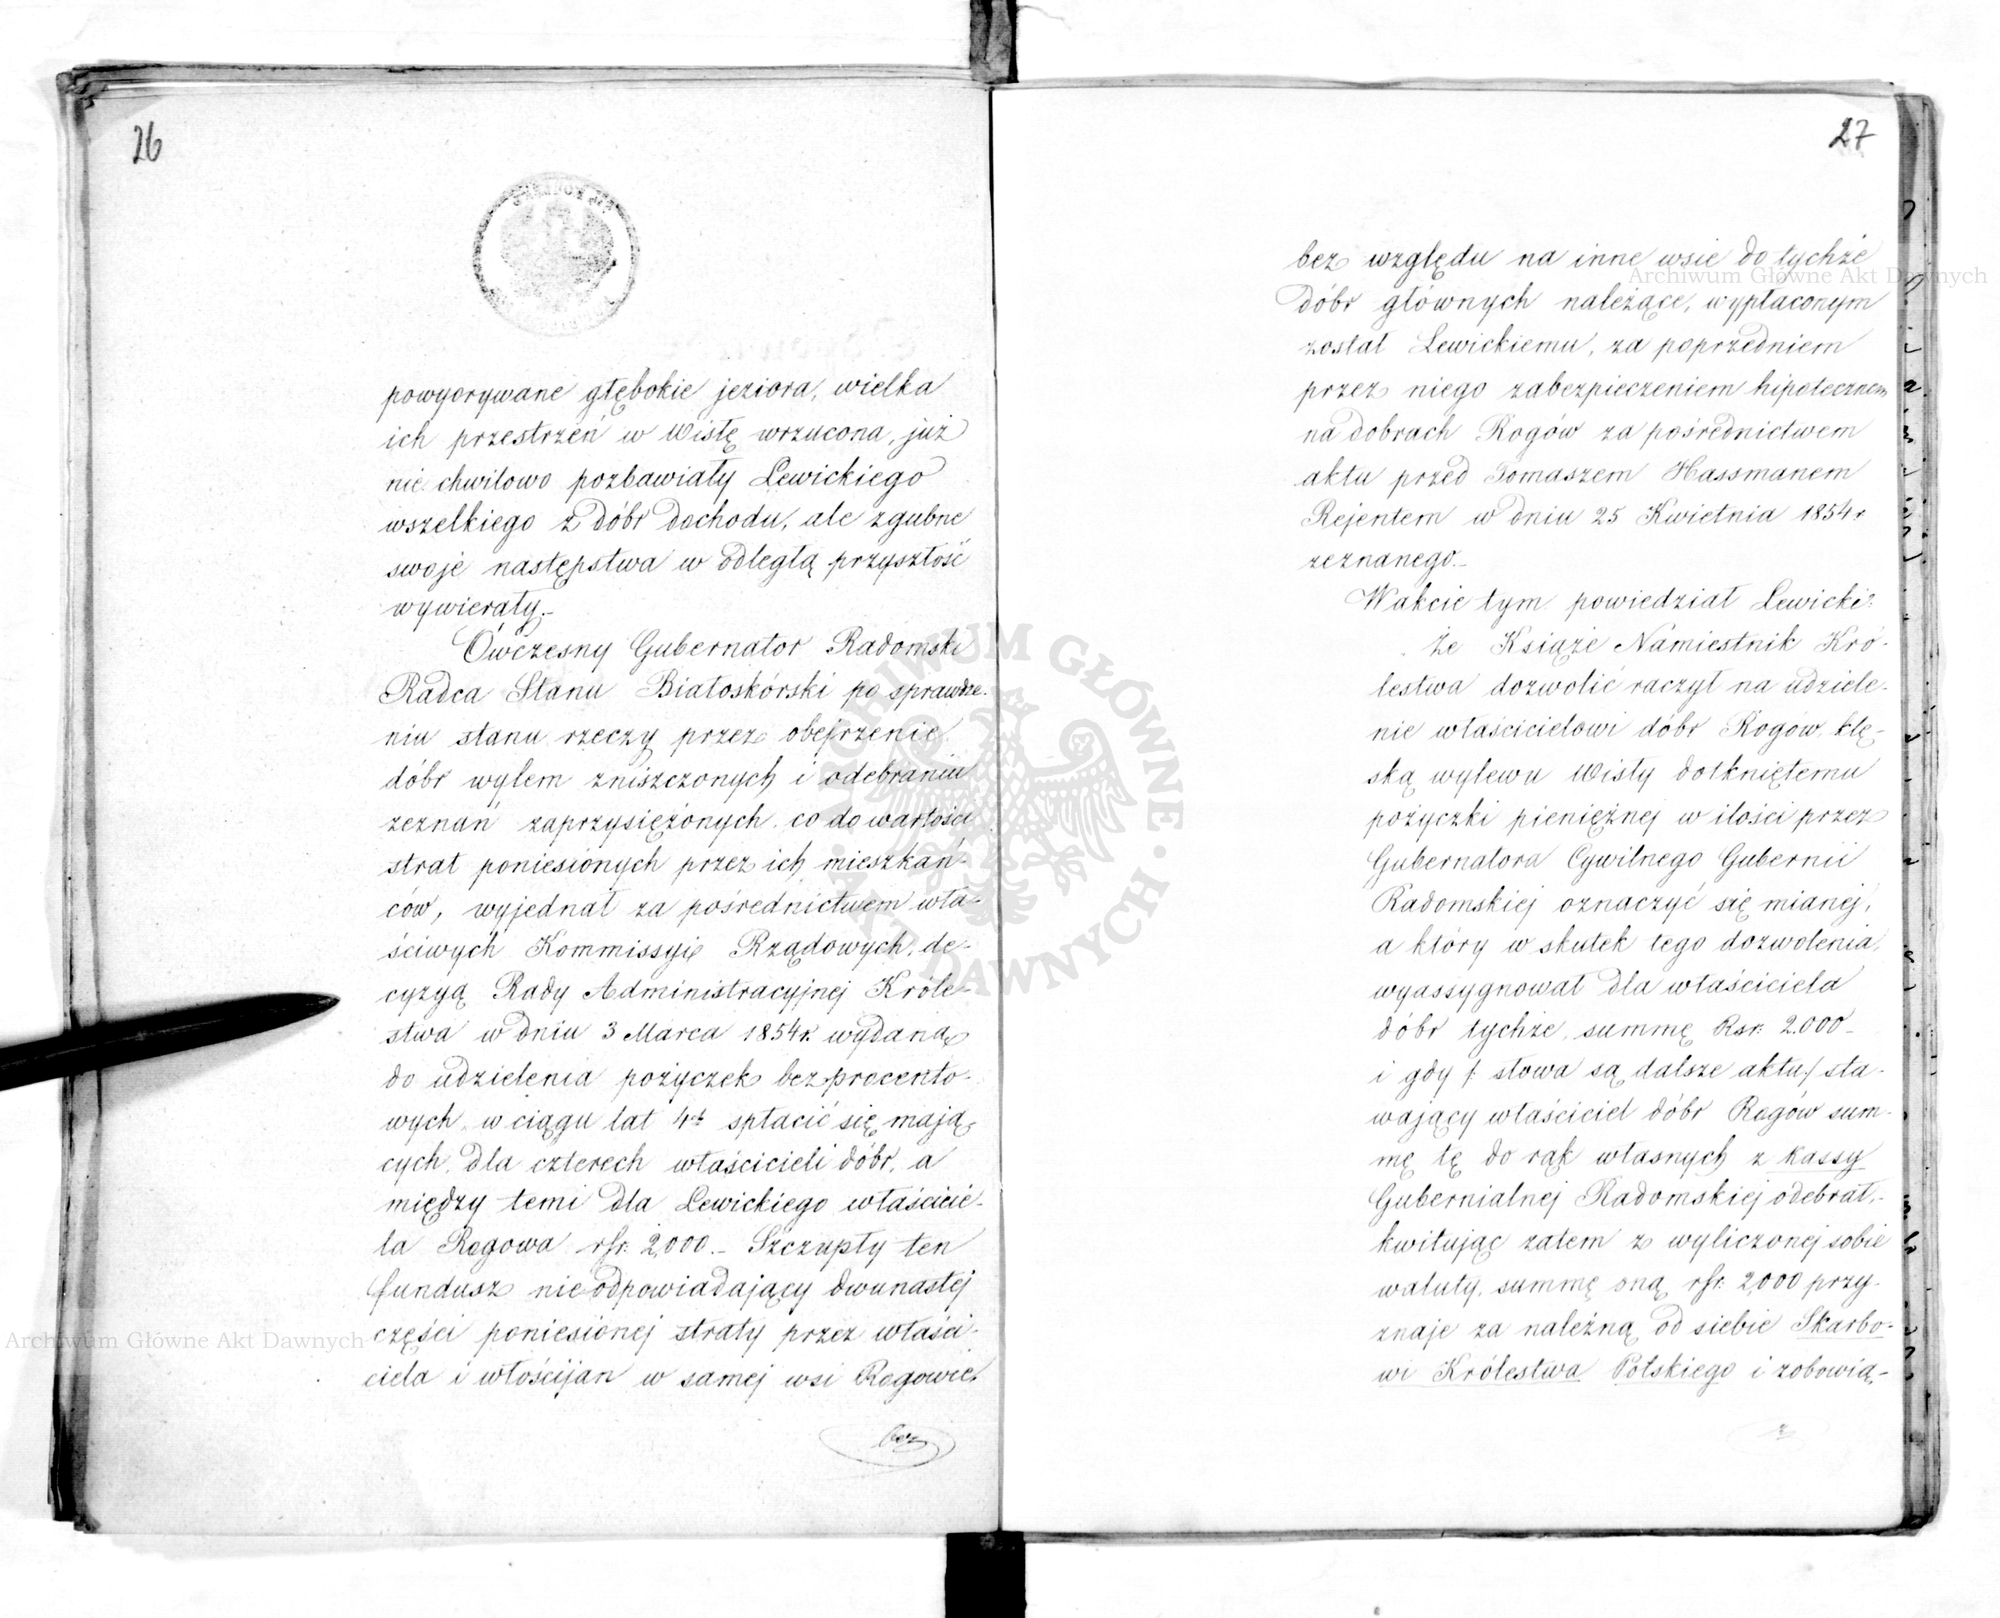 26
powyorywane głębokie jeziora, wielka
ich przestrzeń w Wisłę wrzucona, już
nie chwilowo pozbawiały Lewickiego
wszelkiego z dóbr dochodu, ale zgubne
swoje następstwa w odległą przyszłość
wywierały.–
Ówczesny Gubernator Radomski
Radca Stanu Białoskórski po sprawdze-
niu stanu rzeczy przez obejrzenie
dóbr wylem zniszczonych i odebraniu
zeznań zaprzysiężonych co do wartości
strat poniesionych przez ich mieszkań-
ców, wyjednał za pośrednictwem wła-
ściwych Kommissyi Rządowych, de-
cyzyą Rady Administracyjnej Króle-
stwa w dniu 3 Marca 1854 r. wydaną
do udzielenia pożyczek bezprocento-
wych w ciągu lat 4ch spłacić się mają-
cych, dla czterech właścicieli dóbr, a
między temi dla Lewickiego właścicie-
la Rogowa rsr. 2,000.– Szczupły ten
fundusz nieodpowiadający dwunastej
części poniesionej straty przez właści-
ciela i włościjan w samej wsi Rogowie,
bez
27
bez względu na inne wsie do tychże
dóbr głównych należące, wypłaconym
został Lewickiemu, za poprzedniem
przez niego zabezpieczeniem hipotecznem
na dobrach Rogów za pośrednictwem
aktu przed Tomaszem Hassmanem
Rejentem w dniu 25 Kwietnia 1854 r.
zeznanego.–
W akcie tym powiedział Lewicki:
że Książe Namiestnik Kró-
lestwa dozwolić raczył na udziele-
nie właścicielowi dóbr Rogów, klę-
ską wylewu Wisły dotkniętemu
pożyczki pieniężnej w ilości przez
Gubernatora Cywilnego Gubernii
Radomskiej oznaczyć się mianej,
a który w skutek tego dozwolenia,
wyassygnował dla właściciela
dóbr tychże, summę Rsr. 2.000–
i gdy /: słowa są dalsze aktu:/ sta-
wający właściciel dóbr Rogów sum-
mę tę do rąk własnych z kassy
Gubernialnej Radomskiej odebrał,–
kwitując zatem z wyliczonej sobie
waluty, summę oną rsr. 2,000 przy-
znaje za należną od siebie Skarbo-
wi Królestwa Polskiego i zobowią-
Archiwum Główne Akt Dawnych
Archiwum Główne Akt Dawnych
ARCHIWUM GŁÓWNE AKT DAWNYCH